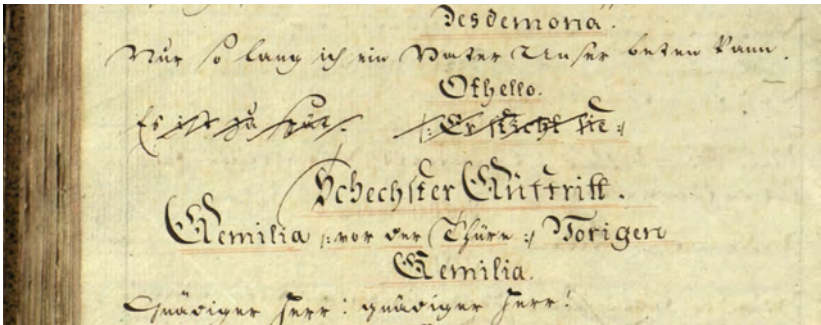 Desdemona.
Nur so lang ich ein Vater Unser beten kann.
Othello.
Es ist zu spät. /: Er sticht sie :/
Schechster Auftritt.
Aemilia /: vor der Thüre :/ Vorigen
Aemilia.
Gnädiger Herr! gnädiger Herr!